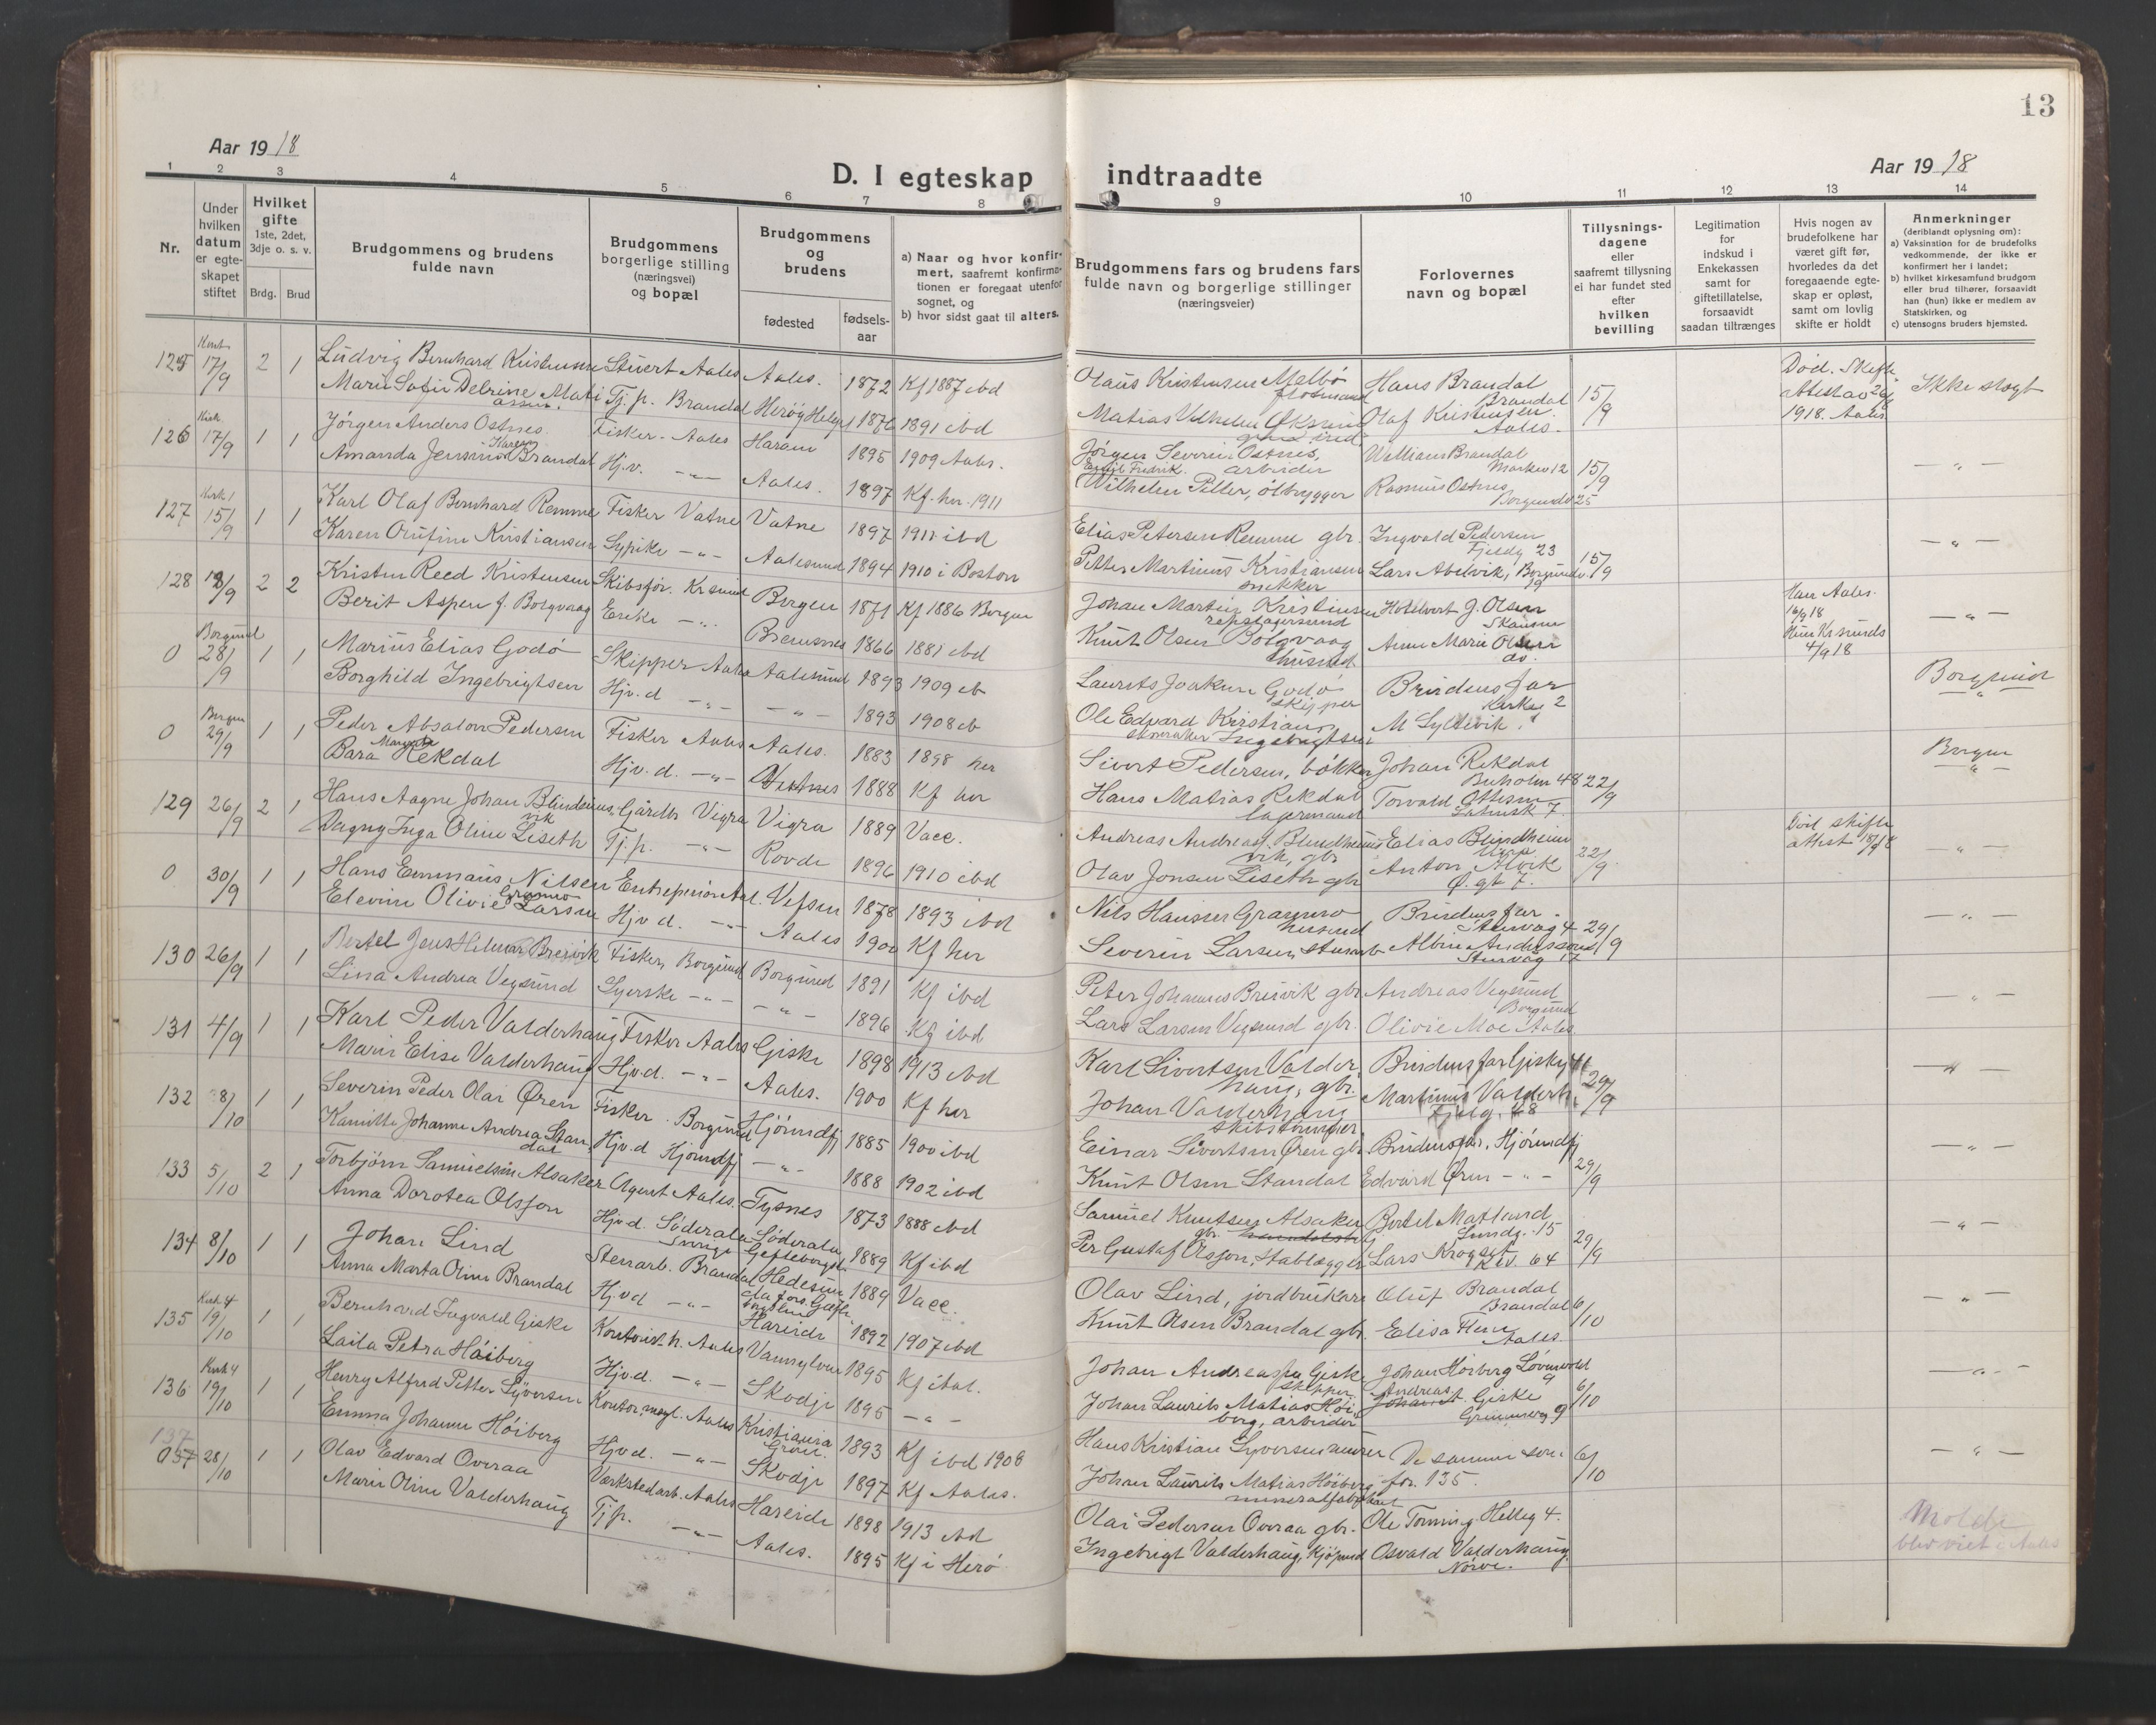 13
Aar 1918
D. I egteskap indtraadte
Aar 1918
1 2 3 4 5 6 7 8 9 10 11 12 13 14
Nr.
Under hvilken datum er egteskapet stiftet
Hvilket gifte 1ste, 2det, 3dje o. s. v.
Brdg. Brud
Brudgommens og brudens fulde navn
Brudgommens borgerlige stilling (næringsvei) og bopæl
Brudgommens og brudens
fødested
fødsels-aar
a) Naar og hvor konfirmert, saafremt konfirmationen er foregaat utenfor sognet, og
b) hvor sidst gaat til alters.
Brudgommens fars og brudens fars fulde navn og borgerlige stillinger (næringsveier)
Forlovernes navn og bopæl
Tillysningsdagene eller saafremt tillysning ei har fundet sted efter hvilken bevilling
Legitimation for indskud i Enkekassen samt for giftetillatelse, forsaavidt saadan tiltrænges
Hvis nogen av brudefolkene har været gift før, hvorledes da det foregaaende egteskap er opløst, samt om lovlig skifte er holdt
Anmerkninger (deriblandt oplysning om):
a) Vaksination for de brudefolks vedkommende, der ikke er konfirmert her i landet;
b) hvilket kirkesamfund brudgom eller brud tilhører, forsaavidt han (hun) ikke er medlem av Statskirken, og
c) utensogns bruders hjemsted.
125 17/9 2 1 Ludvig Bernhard Kristensen Stuert Aales Aales. 1872 Kf 1887 ibd Olaus Kristensen Hans Brandal Brandal 15/9 Død. Skifte attest av 1918. Aales Ikke slegt
Marie Sofie Tj. p. Brandal Herøy 1876 1891 ibd Matias Vilhelm Olaf Kristensen Aales.
126 17/9 1 1 Jørgen Anders Ostnes. Fisker - Aales Haram 1895 1909 Aales. Jørgen Severin Ostnes, arbeider William Brandal 15/9 — " —
Amanda Jensine Karen Brandal Hj.v. — " — Aales. 1897 Kf. her 1911 Fredrik Wilhelm Petter, ølbrygger Rasmus Ostnes, Borgund 25
127 15/9 1 1 Karl Olaf Bernhard Remme Fisker Vatne Vatne 1897 ibd Elias Petersen Remme gbr. Ingvald Pedersen Fjeldg 23 15/9 — " —
Karen Olufine Kristiansen Sypike — " — Aalesund 1894 1910 i Boston Petter Martinus Kristiansen snekker Lars Abelvik,
128 18/9 2 2 Kristen Reed Kristensen Skibsfør. Krsund Bergen 1871 Kf 1886 Bergen Johan Martin Kristensen Hotelvert J. Olsen 16/9 18 — " —
Berit Aspen f. Bolgvaag Enke — " — Bremsnes 1866 1881 ibd Knut Olsen Bolgvaag husmd Anne Marie Olsen do. Krsunds 4/9 18
0 Borgund 28/9 1 1 Marius Elias Godø Skipper Aales Aalesund 1893 1909 Laurits Joakim Godø skipper Brudens far Kirkeg 2 Borgund
Borghild Ingebrigtsen Hjv. d — " — — " — 1893 1908 Ole Edvard Kristian Ingebrigtsen M Syltevik
0 Bergen 29/9 1 1 Peder Absalon Pedersen Fisker Aales Aales. 1883 1898 her Sivert Pedersen, bøkker Johan Rekdal Buholm 48 22/9 Bergen
Bara Margrete Rekdal Hjv. d. — " — Vestnes 1888 Kf her Hans Matias Rekdal lagermand Torvald
129 26/9 2 1 Hans Aagne Johan Blindheimsvik Gårdbr Vigra Vigra 1889 Vacc. Andreas Andreas. Blindheimsvik, gbr Elias Blindheim Vigra 22/9 Død skifte attest 18/9 18 — " —
Dagny Inga Oline Liseth Tj. p. — " — Rovde 1896 1910 ibd Olav Jonsen Liseth gbr Anton Alvik Ø. gt 7.
0 30/9 1 1 Hans Emmaus Nilsen Gramno Entreprenør Aal. Vefsen 1878 1893 ibd Nils Hansen Gramno husmd Brudens far. Stenvåg 4 29/9 — " —
Elevine Olivie Larsen Hjv d. — " — Aales 1900 Kf her Severin Larsen, Albin Andersson Stenvåg 17
130 26/9 1 1 Bertel Jens Hilmar Breivik Fisker, Borgund Borgund 1891 Kf ibd Peter Johannes Breivik gbr Andreas Vegsund Borgund — " —
Lina Andrea Vegsund Syerske — " — — " — 1896 Kf ibd Lars Larsen Vegsund gbr. Olivie Moe Aales
131 4/9 1 1 Karl Peder Valderhaug Fisker Aales Giske 1898 1913 ibd Karl Sivertsen Valderhaug, gbr. Brudens far 29/9 — " —
Marie Elise Valderhaug Hjv.d. — " — Aales. 1900 Kf her Johan Valderhaug skibstømmer. Martinus Valderh.
132 8/10 1 1 Severin Peder Olai Øren Fisker. Borgund Hjørundfj 1885 1900 ibd Einar Sivertsen Øren gbr Brudens far, Hjørundfj 29/9 — " —
Kamille Johanne Andrea Standal Hjv. d Hjørundfj — " — 1888 1902 ibd Knut Olsen Standal Edvard Øren — " —
133 5/10 2 1 Torbjørn Samuelsen Alsaker Agent Aales. Tysnes 1873 1888 ibd Samuel Knutsen Alsaker gbr. Bertel Matland Lundg. 15 29/9 — " —
Anna Dorotea Olsson Hjv.d. Söderala Sverige Söderala Gefleborgs 1889 Kf ibd Per Gustaf Olsson, stablægger Lars Krogset 64
134 8/10 1 1 Johan Lind Stenarb. Brandal Hedesunda 1889 Vacc. Olav Lind, jordbrukare Oluf Brandal Brandal 6/10 — " —
Anna Marta Oline Brandal Hjvd — " — Hareide 1892 1907 ibd Knut Olsen Brandal gbr. Elisa Aales
135 Kirk 4 19/10 1 1 Bernhard Ingvald Giske Kontorist h. Aales Vannylven 1895 Kf ibd. Johan Andreas Giske skipper Johan Høiberg Løvenvold 9 6/10 — " —
Laila Petra Høiberg Hjv.d. — " — Skodje 1895 — " — Johan Laurits Matias Høiberg, arbeider Andreas Giske 9
136 Kirk 4 19/10 1 1 Henry Alfred Petter Syversen Kontor Aales Kristiania 1893 Kf ibd 1908 Hans Kristian Syversen murer De samme som for 135. 6/10 — " —
Emma Johanne Høiberg Hjv.d. — " — Skodje 1897 Kf Aales. Johan Laurits Matias Høiberg
137 28/10 1 1 Olav Edvard Overaa Verkstedarb. Aales Hareide 1898 1913 ibd Olai Pedersen Overaa gbr. Ole Torning. Helleg 4. Molde blev viet i Aales
Marie Oline Valderhaug Tj p. — " — Aales. 1895 Kf i Herø Ingebrigt Valderhaug, Kjøpmd Osvald Valderhaug Nørve.